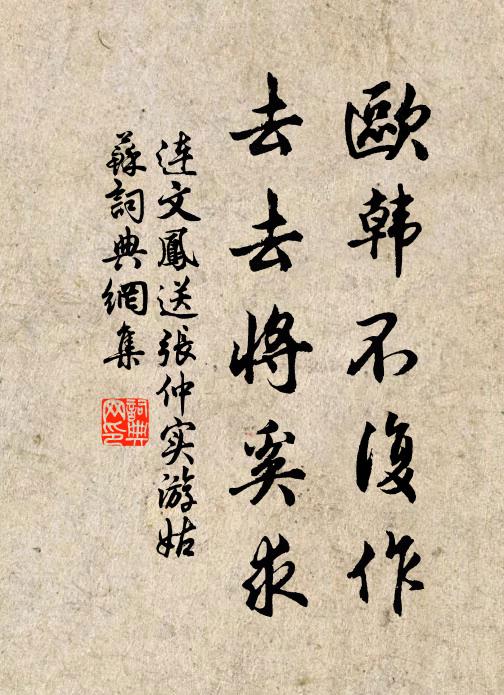 歐韩不復作
去去將奚求
连文鳳送張仲实游姑
蘇詞典網集
詞典网印